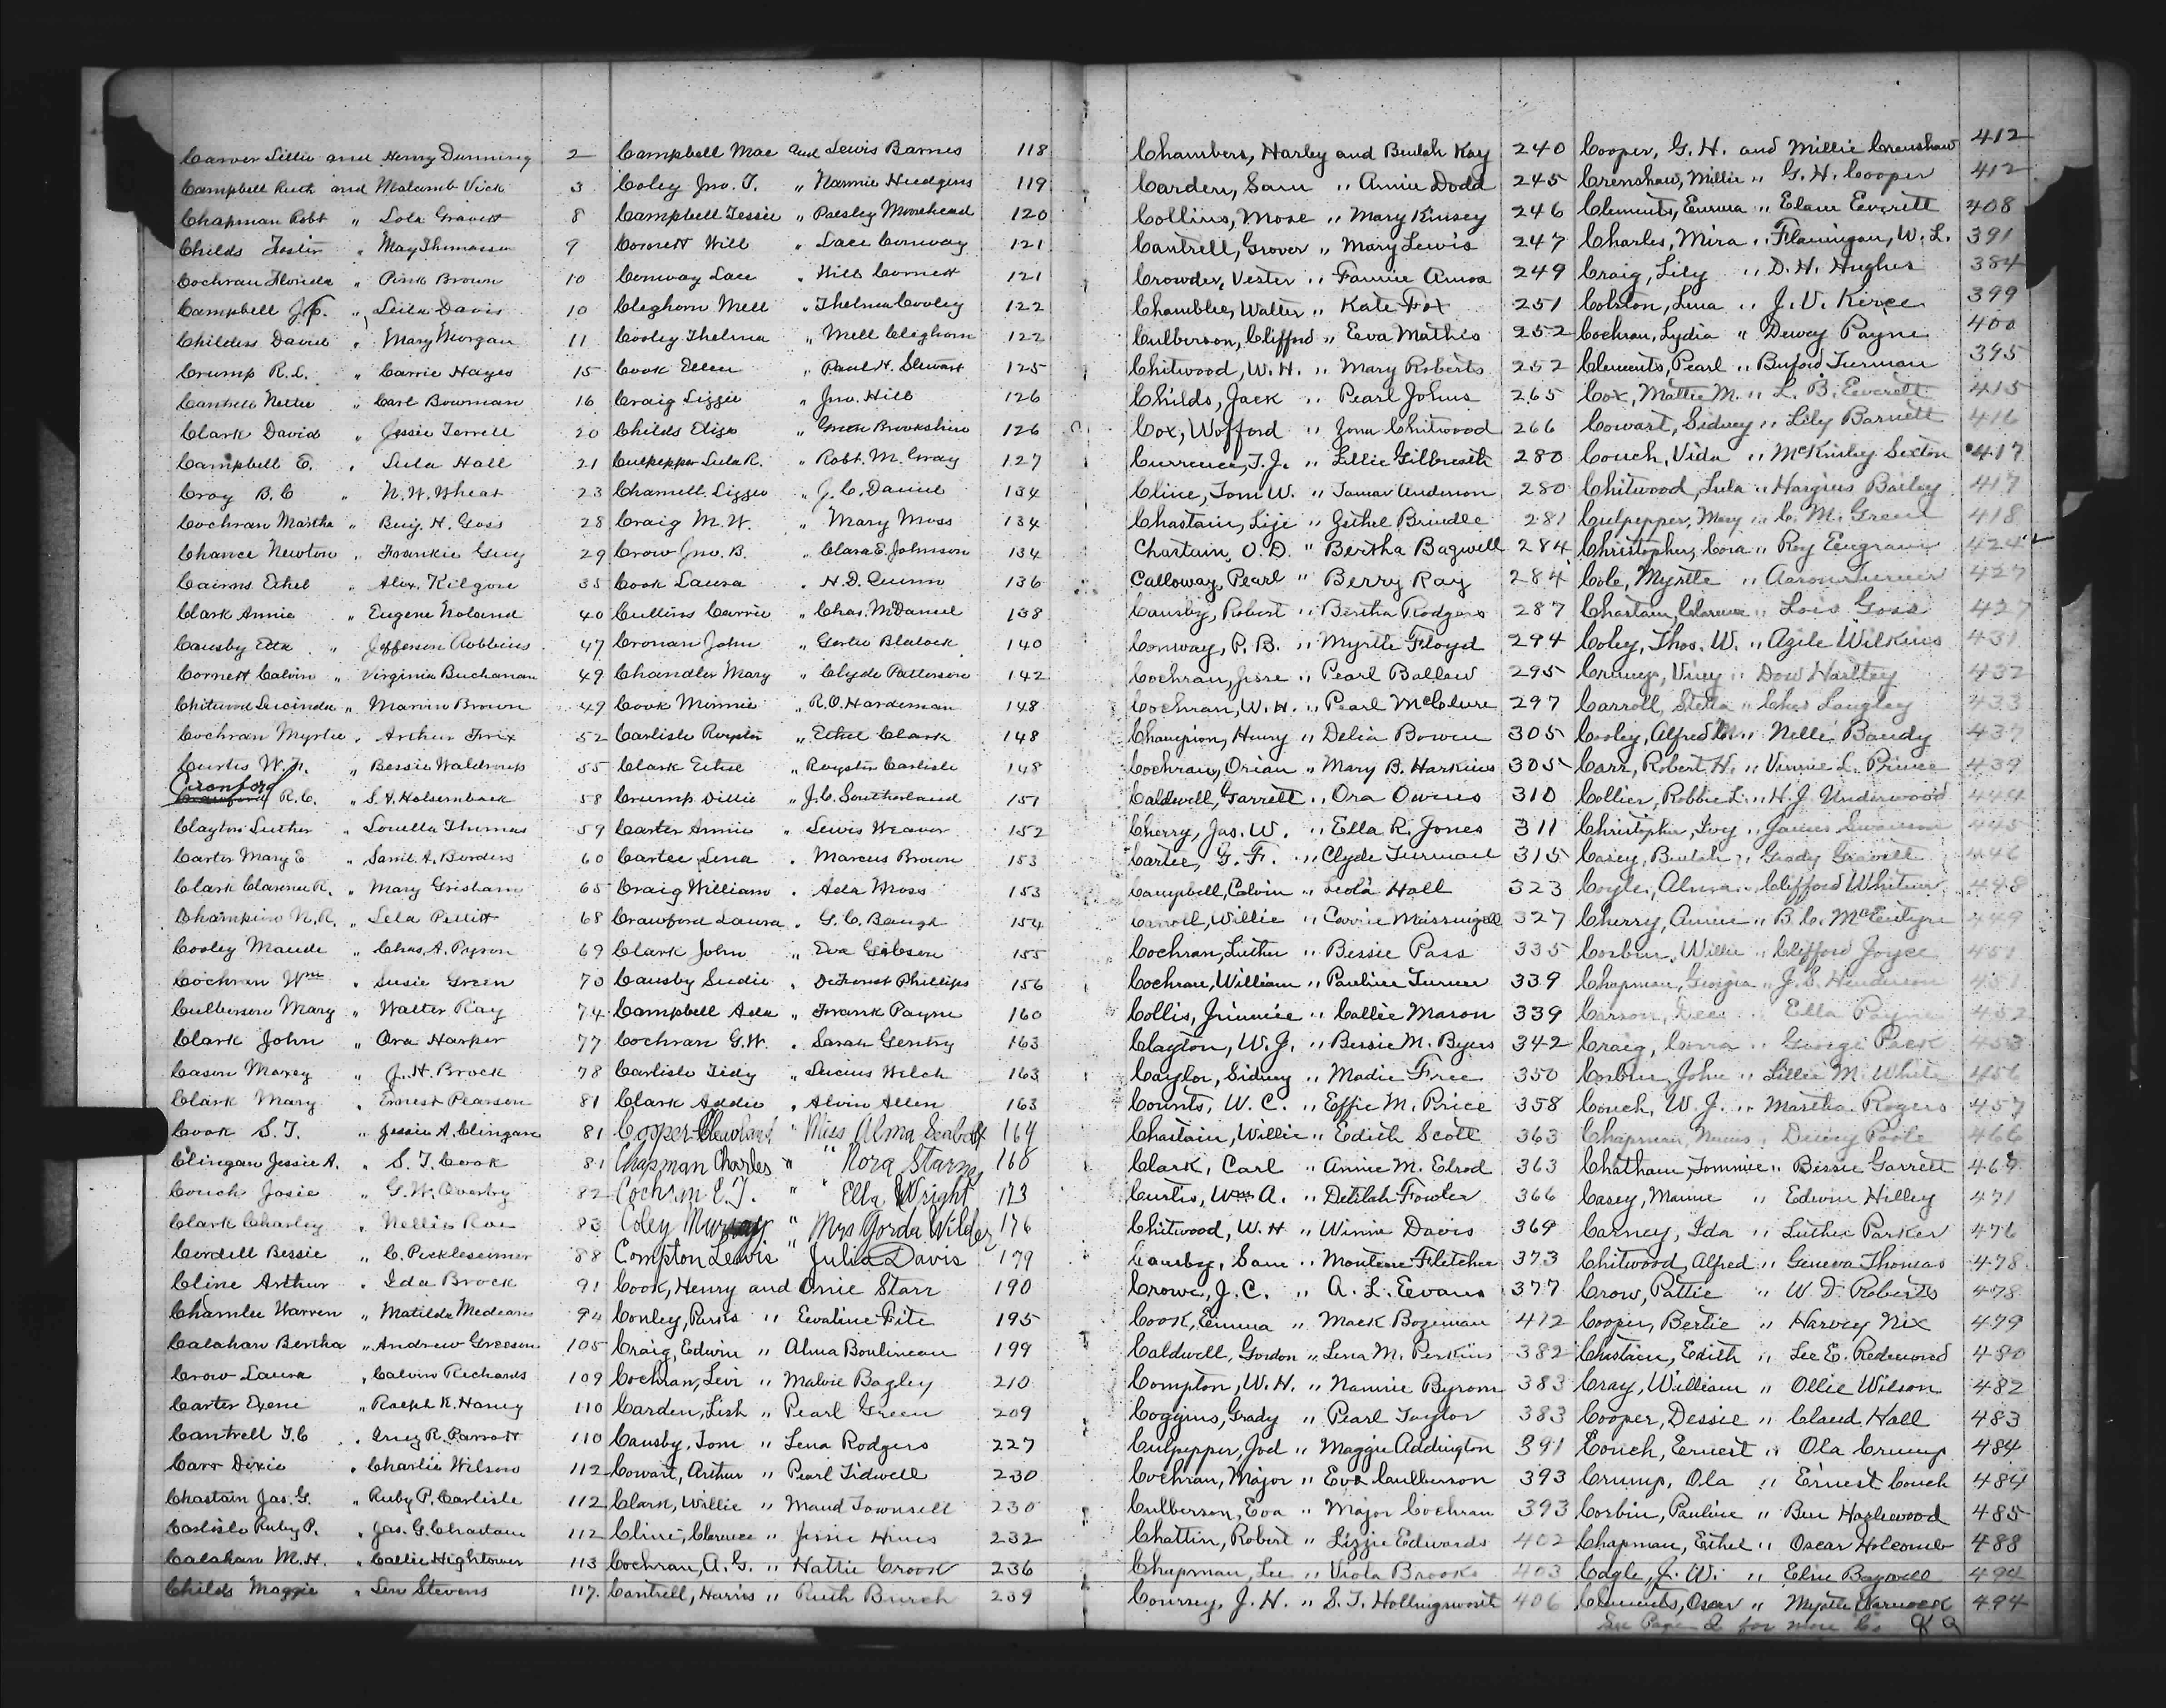 Carver Lillie and Henry Dunning 2
Campbell Ruth and Malcomb Vick 3
Chapman Robt " Lola Gravett 8
Childs Foster " May Thomason 9
Cochran Florida " Pink Brown 10
Campbell J.C. " Leila Davis 10
Childers David " Mary Morgan 11
Crump R.L. " Carrie Hayes 15
Cantrell Nettie " Carl Bowman 16
Clark David " Jessie Terrell 20
Campbell E. " Lula Hall 21
Croy B.C " N.W. Wheat 23
Cochran Martha " Benj. H. Goss 28
Chance Newton " Frankie Guy 29
Cairns Ethel " Alex. Kilgore 35
Clark Annie " Eugene Noland 40
Causby Etta " Jefferson Robbins 47
Cornett Calvin " Virginia Buchanan 49
Chitwood Lucinda " Marion Brown 49
Cochran Myrtle " Arthur Trix 52
Curtis W.H. " Bessie Waldroup 55
Cranford R.C. " S.V. Holsemback 58
Clayton Luther " Louella Thomas 59
Carter Mary E " Saml. A. Borders 60
Clark Clarence R. " Mary Grisham 65
Champion N.R. " Lela Pettitt 68
Cooley Maude " Chas. A. Payson 69
Cochran Wm " Susie Green 70
Culberson Mary " Walter Ray 74
Clark John " Ora Harper 77
Cason Maxey " J.H. Brock 78
Clark Mary " Ernest Pearson 81
Cook S.T. " Jessie A. Clingan 81
Clingan Jessie A. " S.T. Cook 81
Couch Josie " G.W. Overby 82
Clark Charley " Nellie Rae 83
Cordell Bessie " C. Pickleseimer 88
Cline Arthur " Ida Brock 91
Chamlee Warren " Matilda Medears 94
Calahan Bertha " Andrew Greeson 105
Crow Laura " Calvin Richards 109
Carter Exene " Ralph K. Haney 110
Cantrell T.C " Inez R. Parrott 110
Carr Dixie " Charlie Wilson 112
Chastain Jas. G. " Ruby P. Carlisle 112
Carlisle Ruby P. " Jas. G. Chastain 112
Calahan M.H. " Callie Hightower 113
Childs Maggie " Len Stevens 117
Campbell Mae and Lewis Barnes 118
Coley Jno. T. " Nannie Hudgins 119
Campbell Tessie " Paesley Moorehead 120
Cornett Will " Lace Conway 121
Conway Lace " Will Cornett 121
Cleghorn Mell " Thelma Cooley 122
Cooley Thelma " Mell Cleghorn 122
Cook Ellen " Paul H. Stewart 125
Craig Lizzie " Jno. Hill 126
Childs Eliza " Green Brookshire 126
Culpepper Lula R. " Robt. M. Gray 127
Charnell Lizzie " J.C. Daniel 134
Craig M.W. " Mary Moss 134
Crow Jno. B. " Clara E. Johnson 134
Cook Laura " H.D. Quinn 136
Cullins Carrie " Chas. McDaniel 138
Cronan John " Gertie Blalock 140
Chandler Mary " Clyde Patterson 142
Cook Minnie " R.O. Hardeman 148
Carlisle Royster " Ethel Clark 148
Clark Ethel " Royster Carlisle 148
Crump Dillie " J.C. Southerland 151
Carter Annie " Lewis Weaver 152
Cartee Lena " Marcus Brown 153
Craig William " Ada Moss 153
Crawford Laura " G.C. Baugh 154
Clark John " Eva Gibson 155
Causby Sudie " DeForest Phillips 156
Campbell Ada " Frank Payne 160
Cochran G.W. " Sarah Gentry 163
Carlisle Tidy " Lucius Welch 163
Clark Addie " Alvin Allen 163
Cooper Cleveland " Miss Alma Seabolt 164
Chapman Charles " " Nora Starnes 168
Cochran E.T. " " Ella Wright 173
Coley Murray " Mrs Gorda Wilder 176
Compton Lewis " Julia Davis 179
Cook, Henry and Onie Starr 190
Conley, Parks " Evaline Fite 195
Craig, Edwin " Alma Boulineau 199
Cochran, Levi " Malvie Bagley 210
Carden, Lish " Pearl Green 209
Causby, Tom " Lena Rodgers 227
Cowart, Arthur " Pearl Tidwell 230
Clark, Willie " Maud Townsell 230
Cline, Clarence " Jessie Hines 232
Cochran, A.G. " Hattie Crook 236
Cantrell, Harris " Ruth Burch 239
Chambers, Harley and Beulah Kay 240
Carden, Sam " Annie Dodd 245
Collins, Mose " Mary Kinsey 246
Cantrell, Grover " Mary Lewis 247
Crowder, Vester " Fannie Amos 249
Chamblee, Walter " Kate Fox 251
Culberson, Clifford " Eva Mathis 252
Chitwood, W.H. " Mary Roberts 252
Childs, Jack " Pearl Johns 265
Cox, Wofford " Zona Chitwood 266
Currence, T.J. " Lillie Gilbreath 280
Cline, Tom W. " Tamar Anderson 280
Chastain, Lije " Zethel Brindle 281
Chartain, O.D. " Bertha Bagwell 284
Calloway, Pearl " Berry Ray 284
Causby, Robert " Bertha Rodgers 287
Conway, P.B. " Myrtle Floyd 294
Cochran, Jesse " Pearl Ballew 295
Cochran, W.H. " Pearl McClure 297
Champion, Henry " Delia Bowen 305
Cochran, Orian " Mary B. Harkins 305
Caldwell, Garrett " Ora Owens 310
Cherry, Jas. W. " Ella R. Jones 311
Cartee, G.F. " Clyde Turman 315
Campbell, Colvin " Leola Hall 323
Carroll, Willie " Carrie Massingill 327
Cochran, Luther " Bessie Pass 335
Cochran, William " Pauline Turner 339
Collis, Jimmie " Callie Mason 339
Clayton, W.J. " Bessie M. Byers 342
Caylor, Sidney " Madie Free 350
Counts, W.C. " Effie M. Price 358
Chastain, Willie " Edith Scott 363
Clark, Carl " Annie M. Elrod 363
Curtis, Wm A. " Delilah Fowler 366
Chitwood, W.H " Winnie Davis 369
Causby, Sam " Montene Fletcher 373
Crowe, J.C. " A.L. Evans 377
Cook, Emma " Mack Bozeman 412
Caldwell, Gordon " Lena M. Perkins 382
Compton, W.H. " Nannie Byrom 383
Coggins, Grady " Pearl Taylor 383
Culpepper, Joel " Maggie Addington 391
Cochran, Major " Eva Culberson 393
Culberson, Eva " Major Cochran 393
Chattin, Robert " Lizzie Edwards 402
Chapman, Lee " Viola Brooks 403
Coursey, J.H. " S.T. Hollingsworth 406
Cooper, G.H. and Millie Crenshaw 412
Crenshaw, Millie " G.H. Cooper 412
Clements, Emma " Elam Everett 408
Charles, Mira " Flannigan, W.L. 391
Craig, Lily " D.H. Hughes 384
Colston, Lina " J.V. Kirce 399
Cochran, Lydia " Dewey Payne 400
Clements, Pearl " Buford Turman 395
Cox, Mattie M. " L.B. Everett 415
Cowart, Sidney " Lily Barnett 416
Couch, Vida " McKinley Sexton 417
Chitwood, Lula " Hargius Bailey 417
Culpepper, Mary " C.M. Green 418
Christopher, Cora " Roy Engram 424
Cole, Myrtle " Aaron Turner 427
Chastain, Clarence " Lois Goss 427
Coley, Thos. W. " Azile Wilkins 431
Crump, Viney " Dow Hartley 432
Carroll, Stella " Chas Langley 433
Cooley, Alfred M. " Nelle Bandy 437
Carr, Robert H. " Vinnie L. Prince 439
Collier, Robbie L. " H.J. Underwood 444
Christopher, Ivy " James Swanson 445
Casey, Beulah " Grady Gravett 446
Coyle, Alma " Clifford Whitner 448
Cherry, Annie " B.C. McEntyre 449
Corbin, Willie " Clifford Joyce 451
Chapman, Georgia " J.S. Henderson 451
Carson, Dee " Ella Payne 452
Craig, Corra " George Pack 453
Corbin, John " Lillie M. White 456
Couch, W.J. " Martha Rogers 457
Chapman, " Dewey Poole 466
Chatham, Tommie " Bessie Garrett 467
Casey, Mamie " Edwin Hilley 471
Carney, Ida " Luther Parker 476
Chitwood, Alfred " Geneva Thomas 478
Crow, Pattie " W.D. Roberts 478
Cooper, Bertie " Harvey Nix 479
Chastain, Edith " Lee E. Redmond 480
Cray, William " Ollie Wilson 482
Cooper, Dessie " Claud Hall 483
Couch, Ernest " Ola Crump 484
Crump, Ola " Ernest Couch 484
Corbin, Pauline " Ben Hazlewood 485
Chapman, Ethel " Oscar Holcomb 488
Cagle, J.W. " Elsie Bagwell 494
Clements, Oscar " Myrtle Warnock 494
See Page Q for more Cs Q